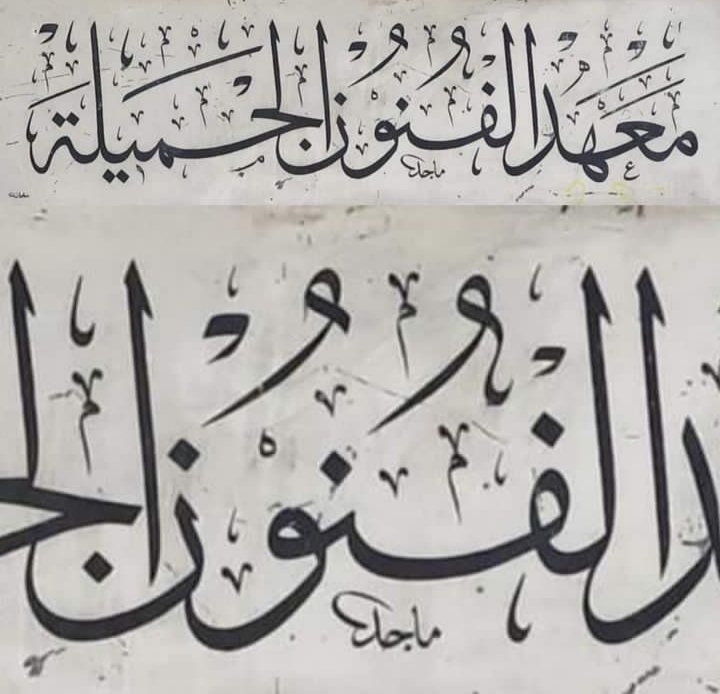 معهد الفنون الجميلة
ماجد
الفنون الج
ماجد